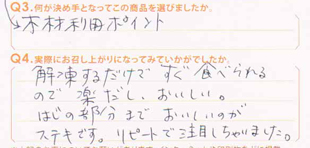 Q3.何が決め手となってこの商品を選びましたか。
木材利用ポイント
Q4.実際にお召し上がりになってみていかがでしたか。
解凍するだけで すぐ食べられる
ので 楽だし、おいしい。
はじの部分まで おいしいのが
ステキです。リピートで注目しちゃいました。